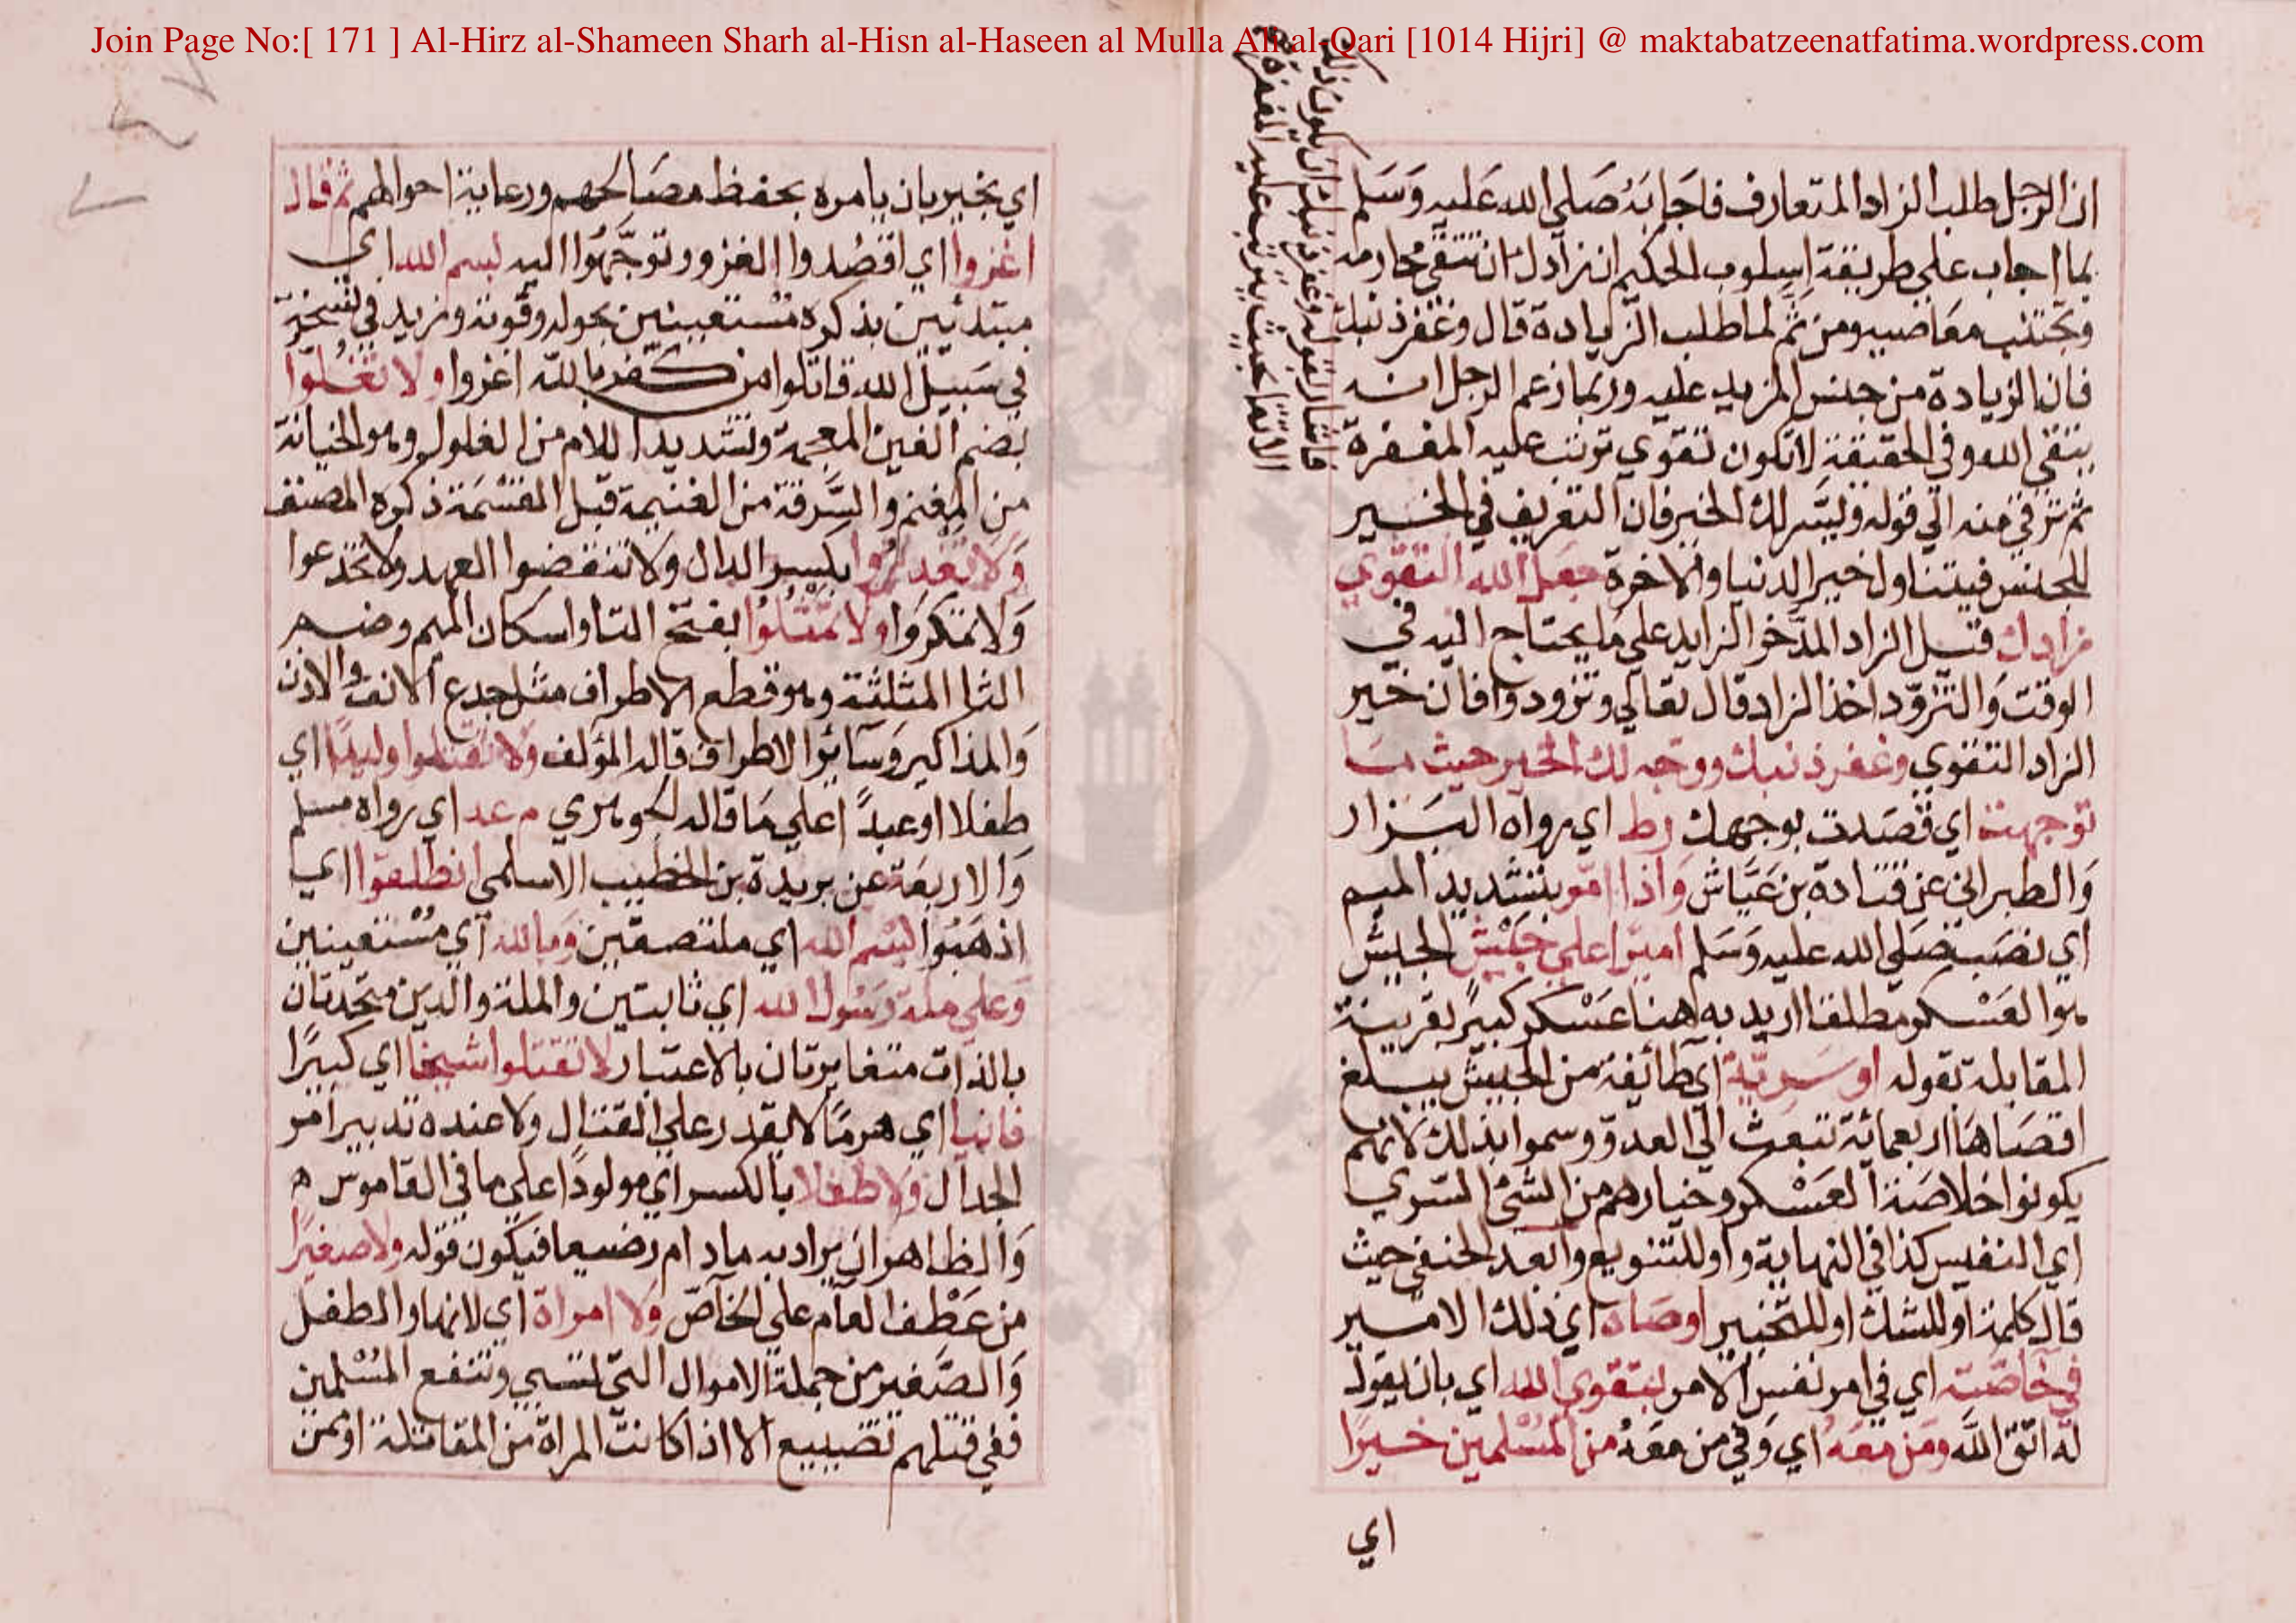 Join Page No:[ 171 ] Al-Hirz al-Shameen Sharh al-Hisn al-Haseen al Mulla Ali al-Qari [1014 Hijri] @ maktabatzeenatfatima.wordpress.com
ان الرجل طلب الزاد المتعارف فاجَابَهُ صَلي الله عَليه وَسَلم
بما اجاب علي طريقة اسلوب الحكيم ان زادك ان تتقي محارمه
وتجتنب معَاصيه ومن ثَم لما طلب الزيادة قال وغفر ذنبك
فان الزيادة من جنس المزيد عليه وربما زعم الرجل انه
يتقي الله وفي الحقيقة لا تكون تقوي ترتب عليه المغفرة
فاشار بقوله وغفر ذنبك ان يكون ذلك
الاتقا بحيث يترتب عليه المغفرة
ثم ترقي منه الي قوله ويسَّر لك الخير فان التعريف في الخير
للجنس فيتناول خير الدنيا والاخرة جعل الله التقوي
زادك قيل الزاد المدَّخر الزايد علي مَا يحتاج اليه في
الوقت وَالتزوّد اخذ الزاد قال تعالي وتزودوا فان خير
الزاد التقوي وغفر ذنبك ووجه لك الخير حيث مَا
توجهت اي قصَدت بوجهك رط اي رواه البزار
وَالطبراني عن قتادة بن عَيَّاش وَاذا امّر بتشديد الميم
اي نصَب صَلي الله عليه وَسَلم اميرا علي جَيْش الجيش
هو العَسْكر مطلقا اريد به هنا عَسْكر كبيرً بقرينة
المقابلة بقوله او سَريّة اي طائفة من الجيش يبلغ
اقصَاهَا اربعمائة تبعث الي العدوّ وسموا بذلك لانهم
يكونوا خلاصَة العَسْكر وخيارهم من الشئ السري
اي النفيس كذا في النهاية واو للتنويع وابعد الحنفي حيث
قال كلمة او للشك او للتخيير اوصَاه اي ذلك الامير
في خاصّته اي في امر نفس الامر بتقوي الله اي بان يقول
له اتّق اللَّه ومَن معَه اي وَفي من معَهُ من المُسْلمين خيرًا
اي
اي بخير بان يامره بحفظ مصَالحهم ورعاية احوالهم ثم قال
اغزوا اي اقصُدوا الغزو وتوجَّهُوا اليه بسم الله اي
مبتدئين بذكره مسْتعينين بحوله وقوته وزيد في نسخة
في سَبيل الله قاتلوا من كفر بالله اغزوا ولا تغُلوّا
بضم الغين المعجمة وتشديد اللام من الغلول وهو الخيانة
من المغنم والسَّرقة من الغنيمة قبل القسْمَة ذكره المصنف
وَلا تغدروا بكسر الدال ولا تنقضوا العهد ولا تخدعوا
وَلا تمكروَا ولا تمْثُلوُا بفتح التا واسكان الميم وضم
الثا المثلثة وهو قطع الاطراف مثل جدع الانف والاذن
وَالمذاكير وَسَائر الاطراف قاله المؤلف وَلا تقتلوا وليدًا اي
طفلا او عبدًا علي مَا قاله الجوهري م عه اي رواه مسلم
وَالاربعَة عن بريدة بن الخطيب الاسلمي انطلقوا اي
اذهَبُوا بسْم الله اي ملتصقين وَبالله اي مُسْتعينين
وَعلي ملة رَسُول الله اي ثابتين والملة والدين متحدتان
بالذات متغايرتان بالاعتبار لا تقتلوا شيخا اي كبيرًا
فانيا اي هرمًا لا يقدر علي القتال ولا عنده تدبير امر
الجدال وَلا طفلا بالكسر اي مولودًا علي ما في القاموس
وَالظاهر ان يراد به مادام رضيعا فيكون قوله ولا صغيرًا
من عَطْف العَام علي الخاصّ وَلا امراة اي لانها والطفل
وَالصَّغير من جملة الاموال التي تسبي وتنفع المُسْلمين
ففي قتلهم تضييع الا اذا كانت المراة من المقاتلة او ممن